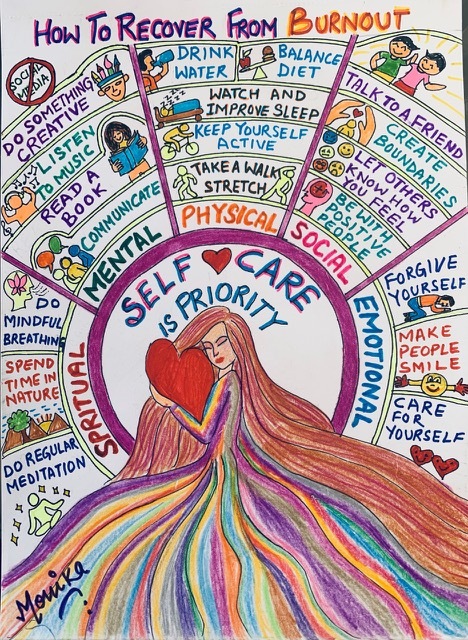 HOW TO RECOVER FROM BURNOUT
SOCIAL
MEDIA
DO SOMETHING
CREATIVE
LISTEN
TO MUSIC
READ A
BOOK
COMMUNICATE
MENTAL
DRINK
WATER
BALANCE
DIET
WATCH AND
IMPROVE SLEEP
KEEP YOURSELF
ACTIVE
TAKE A WALK
STRETCH
PHYSICAL
TALK TO A FRIEND
CREATE
BOUNDARIES
LET OTHERS
KNOW HOW
YOU FEEL
BE WITH
POSITIVE
PEOPLE
SOCIAL
SELF CARE
IS PRIORITY
DO
MINDFUL
BREATHING
SPEND
TIME IN
NATURE
DO REGULAR
MEDITATION
SPRITUAL
FORGIVE
YOURSELF
MAKE
PEOPLE
SMILE
CARE
FOR
YOURSELF
EMOTIONAL
Monika